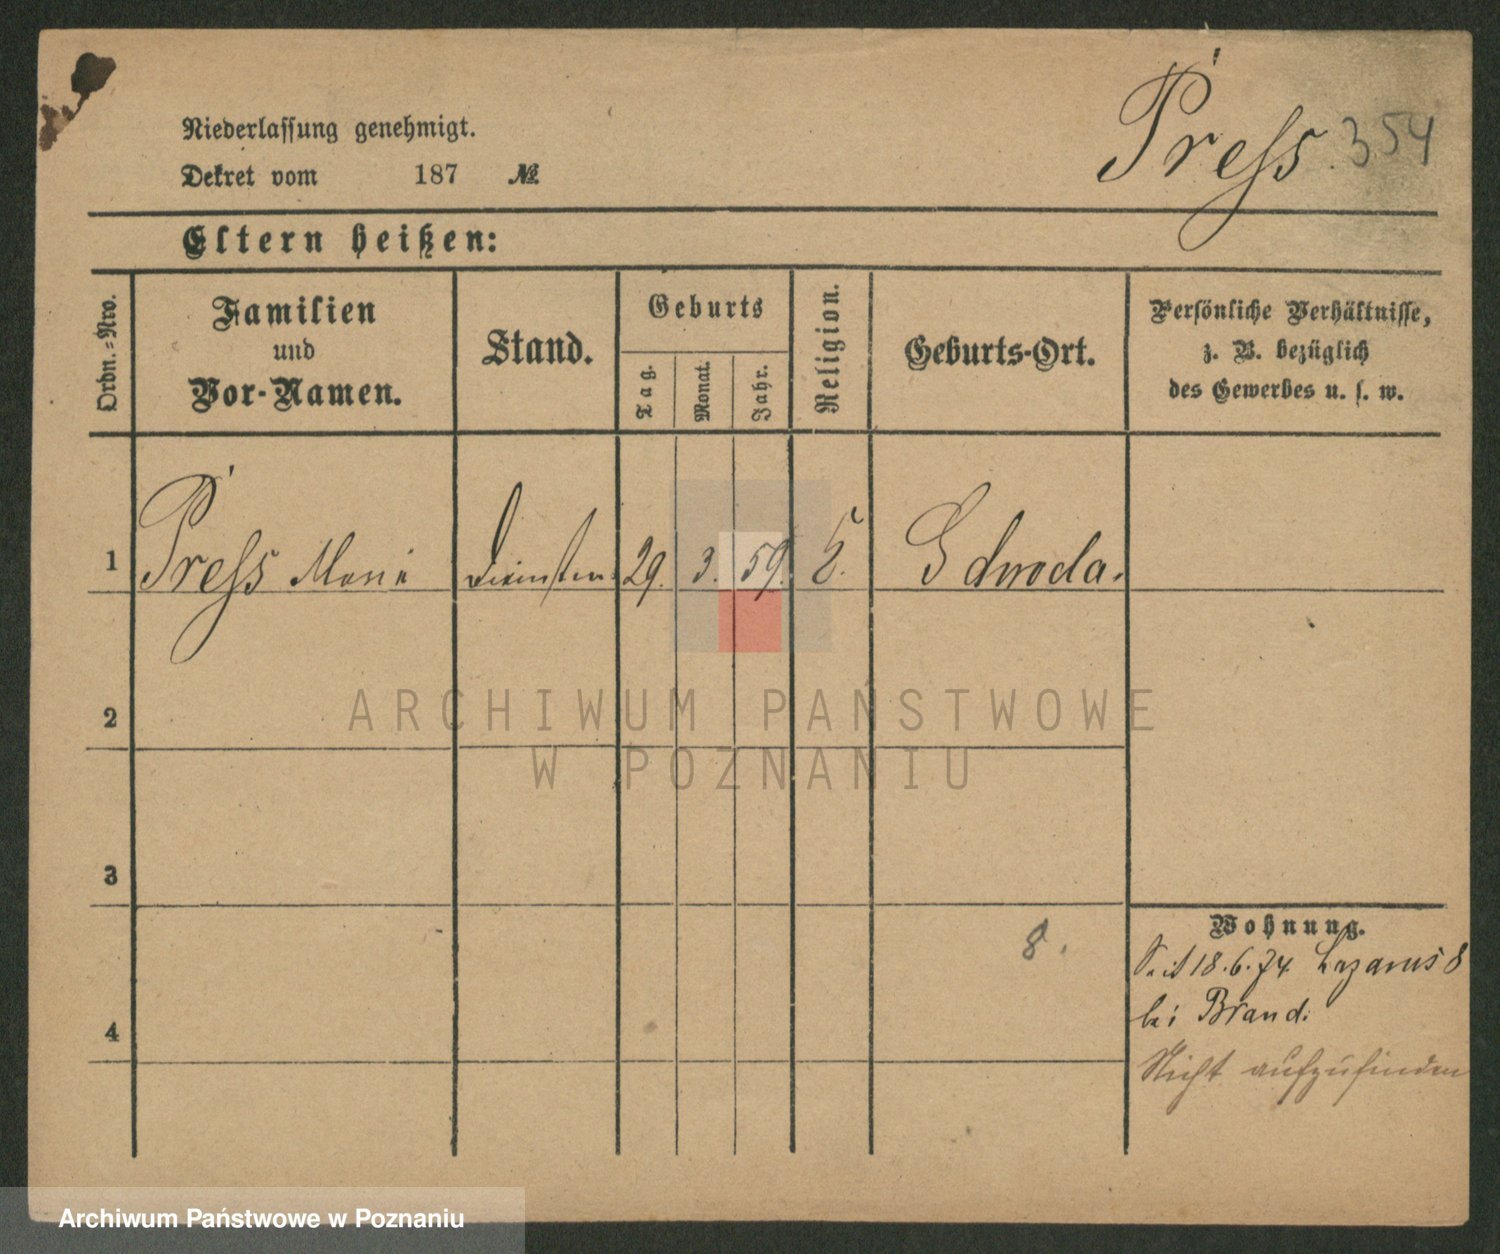 Niederlassung genehmigt.
Dekret vom 187 №
Press 354
Eltern heißen:
Ordn.-Nro.
Familien
und
Vor-Namen.
Stand.
Geburts
Tag.
Monat.
Jahr.
Religion.
Geburts-Ort.
Persönliche Verhältnisse,
z. B. bezüglich
des Gewerbes u. s. w.
1 Press Marie 29. 3. 59.
2
3
4
8.
Wohnung.
Seit 18.6.74 Lazarus 8
bei Brand.
Nicht aufzufinden
ARCHIWUM PAŃSTWOWE
W POZNANIU
Archiwum Państwowe w Poznaniu